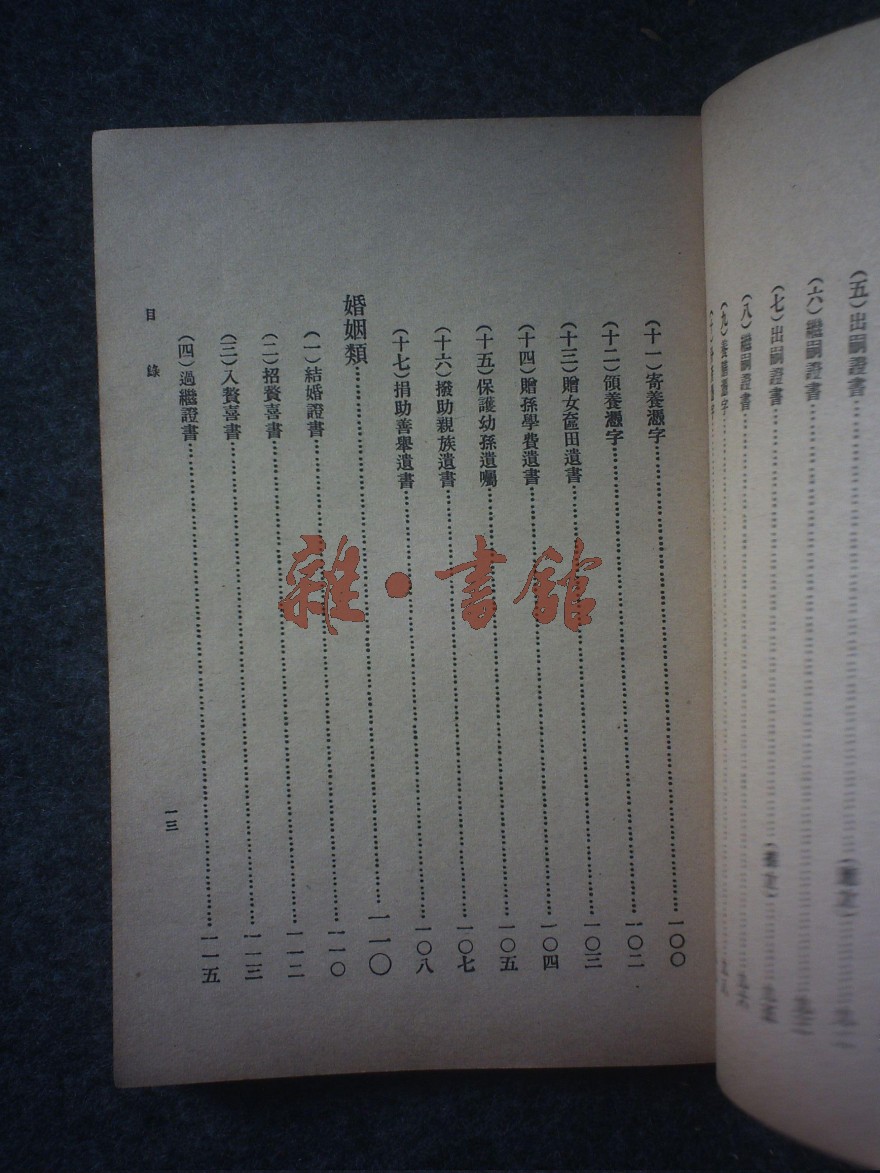 (五)出嗣證書
(六)繼嗣證書
(七)出嗣證書
(八)繼嗣證書
(十一)寄養憑字……一〇〇
(十二)領養憑字……一〇二
(十三)贈女奩田遺書……一〇三
(十四)贈孫學費遺書……一〇四
(十五)保護幼孫遺囑……一〇五
(十六)撥助親族遺書……一〇七
(十七)捐助善舉遺書……一〇八
婚姻類……一一〇
(一)結婚證書……一一〇
(二)招贅喜書……一一二
(三)入贅喜書……一一三
(四)過繼證書……一一五
目錄
一三
雜·書館